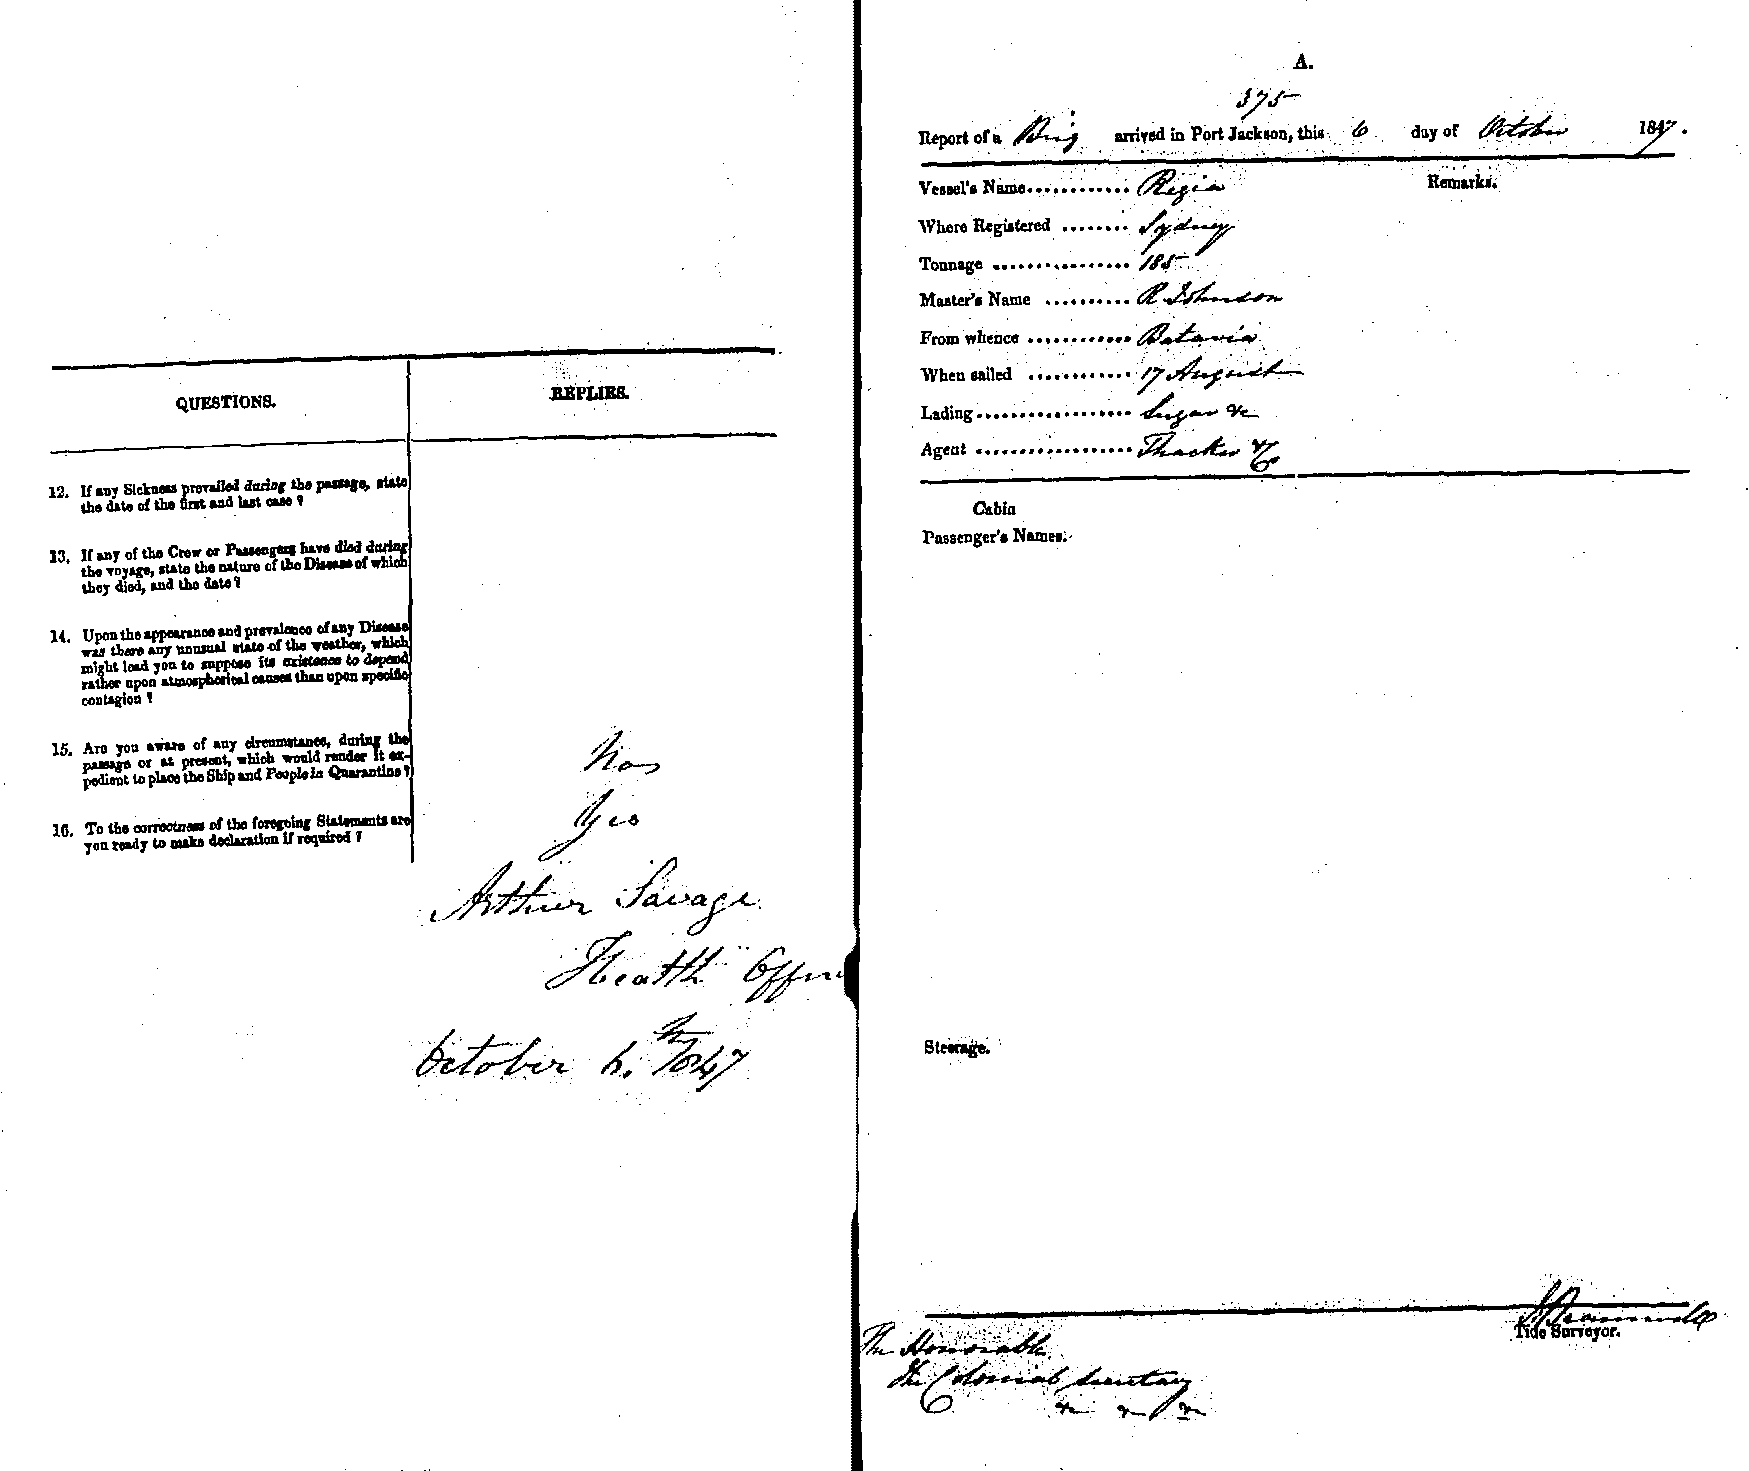 QUESTIONS.
REPLIES.
12. If any Sickness prevailed during the passage, state
the date of the first and last case ?
13. If any of the Crew or Passengers have died during
the voyage, state the nature of the Disease of which
they died, and the date ?
14. Upon the appearance and prevalence of any Disease
was there any unusual state of the weather, which
might lead you to suppose its existence to depend
rather upon atmospherical causes than upon specific
contagion ?
15. Are you aware of any circumstance, during the
passage or at present, which would render it ex-
pedient to place the Ship and People in Quarantine ?
No
16. To the correctness of the foregoing Statements are
you ready to make declaration if required ?
Yes
Arthur Savage
Health Officer
October 6.th /847
A.
375
Report of a Brig arrived in Port Jackson, this 6 day of October 1847.
Vessel's Name............ Regia
Remarks.
Where Registered ........ Sydney
Tonnage ................ 185
Master's Name .......... R Johnson
From whence ............ Batavia
When sailed ............ 17 August
Lading.................. Sugar &c
Agent .................. Thacker & Co
Cabin
Passenger's Names.
Steerage.
Tide Surveyor.
The Honorable
The Colonial Secretary
&c &c &c